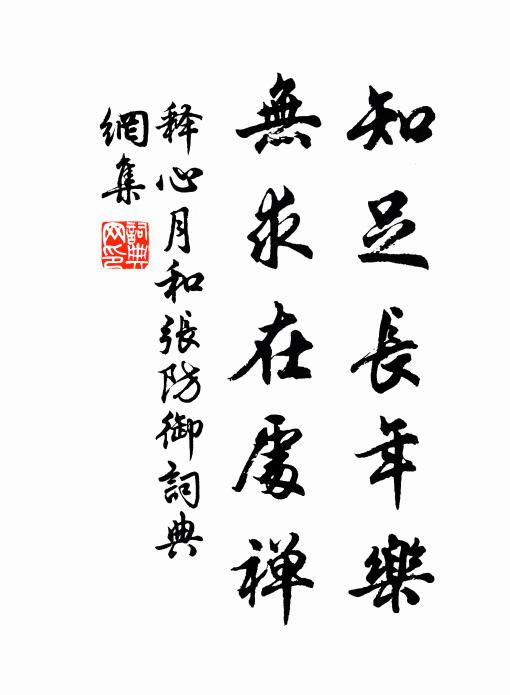 知足長年樂
無求在處禅
释心月和張防御詞典
網集
詞典
网印